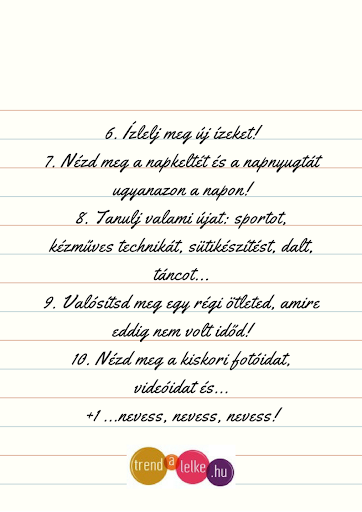 6. Ízlelj meg új ízeket!
7. Nézd meg a napkeltét és a napnyugtát
ugyanazon a napon!
8. Tanulj valami újat: sportot,
kézműves technikát, sütikészítést, dalt,
táncot...
9. Valósítsd meg egy régi ötleted, amire
eddig nem volt időd!
10. Nézd meg a kiskori fotóidat,
videóidat és...
+1 ...nevess, nevess, nevess!
trend a lelke .hu